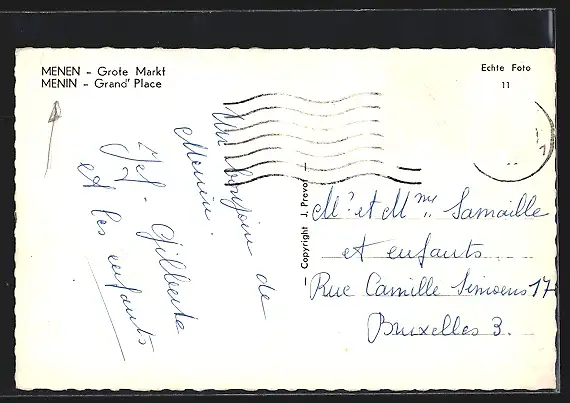 MENEN - Grote Markt
MENIN - Grand' Place
Echte Foto
11
Un bonjour de
Menin.
Jef - Gilberte
et les enfants
— Copyright J. Prevot —
Mr et Mme Samaille
et enfants
Rue Camille Simoens 17
Bruxelles 3.